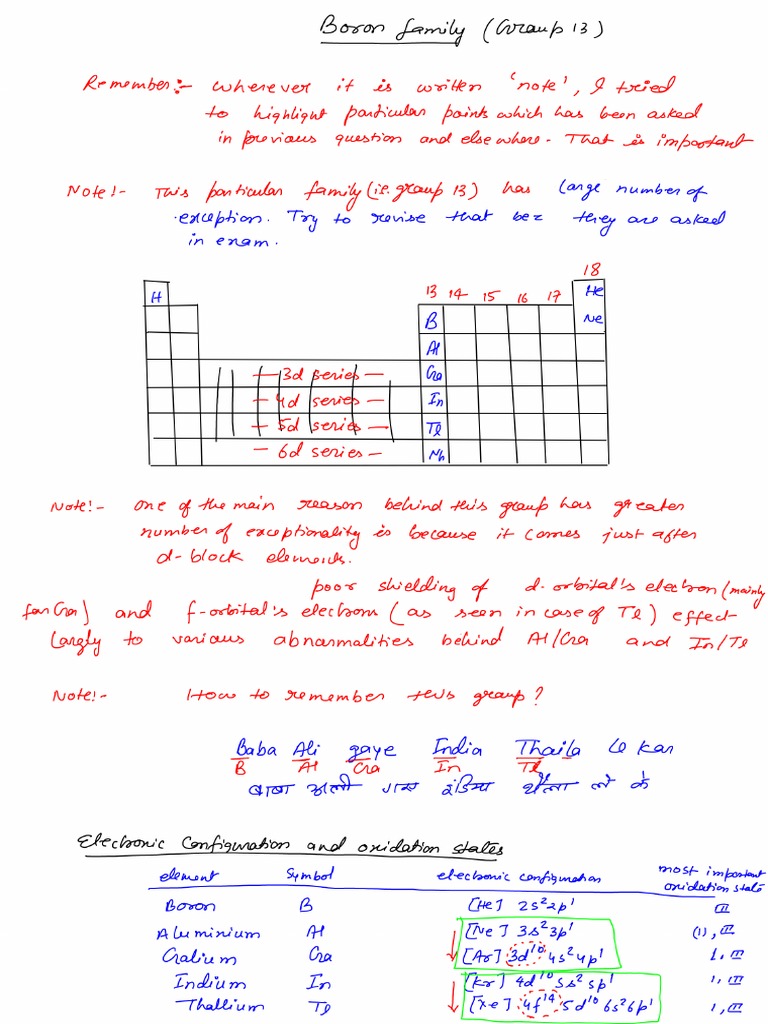 Boron family (Group 13)
Remember:- wherever it is written 'note', I tried
to highlight particular points which has been asked
in previous question and elsewhere. That is important
Note!- This particular family (i.e. group 13) has large number of
exception. Try to revise that bcz they are asked
in exam.
18
H 13 14 15 16 17 He
B Ne
Al
3d series Ga
4d series In
5d series Tl
6d series Nh
Note!- one of the main reason behind this group has greater
number of exceptionality is because it comes just after
d-block elements.
poor shielding of d-orbital's electron (mainly
for Ga) and f-orbital's electrons (as seen in case of Tl) effect
largly to various abnormalities behind Al/Ga and In/Tl
Note!- How to remember this group?
Baba Ali gaye India Thaila le kar
B Al Ga In Tl
बाबा अली गए इंडिया थैला ले के
Electronic Configuration and oxidation states
element Symbol electronic configuration most important oxidation state
Boron B [He] 2s² 2p¹ III
Aluminium Al [Ne] 3s² 3p¹ (I), III
Galium Ga [Ar] 3d¹⁰ 4s² 4p¹ I, III
Indium In [Kr] 4d¹⁰ 5s² 5p¹ I, III
Thallium Tl [Xe] 4f¹⁴ 5d¹⁰ 6s² 6p¹ I, III